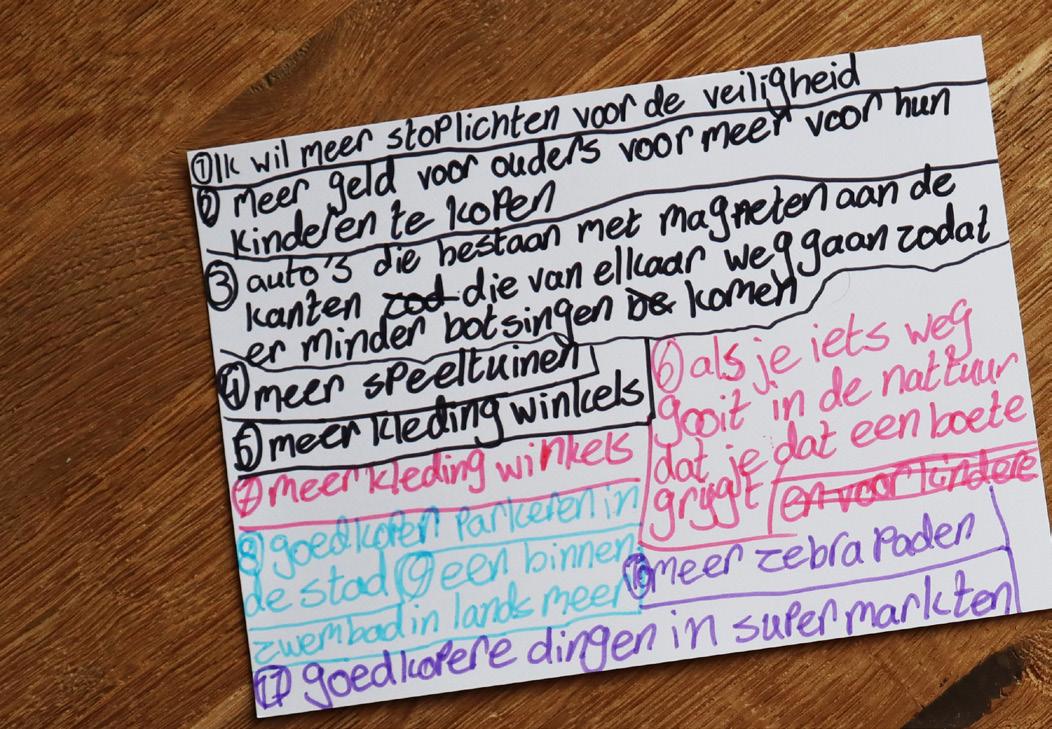 ① Ik wil meer stoplichten voor de veiligheid
② meer geld voor ouders voor meer voor hun
kinderen te kopen
③ auto's die bestaan met magneten aan de
kanten zod die van elkaar weg gaan zodat
er minder botsingen be komen
④ meer speeltuinen
⑤ meer kleding winkels
⑥ als je iets weg
gooit in de nattuur
dat je dat een boete
grygt en voor kindere
⑦ meer kleding winkels
⑧ goedkopen parkeren in
de stad ⑨ een binnen
zwembad in landsmeer
⑩ meer zebra paden
⑪ goedkopere dingen in supermarkten